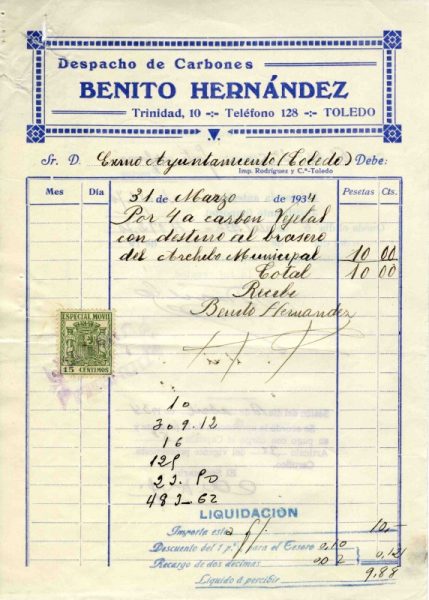 Despacho de Carbones
BENITO HERNÁNDEZ
Trinidad, 10 -:- Teléfono 128 -:- TOLEDO
Sr. D. Exmo Ayuntamiento (Toledo) Debe:
Imp. Rodríguez y C.ª-Toledo
Mes Día 31 de Marzo de 1934 Pesetas Cts.
Por 4 a carbon Vejetal
con destino al brasero
del Archibo Municipal 10 00
Total 10 00
Recibi
Benito Hernandez
ESPECIAL MOVIL
15 CENTIMOS
10
309.12
16
125
23.50
483-62
LIQUIDACIÓN
Importa esta 10,-
Descuento del 1 p.% para el Tesoro 0,10
Recargo de dos décimas 002 0,12
Líquido á percibir 9,88